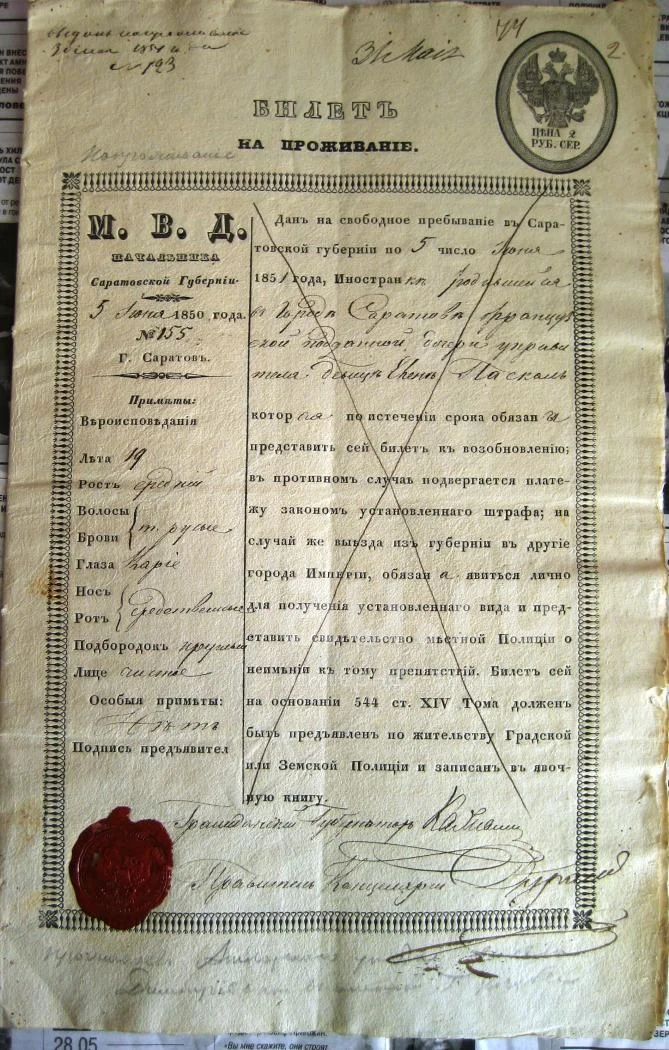 31 Мая
74
2.
№ 123
ЦѢНА 2
РУБ. СЕР.
БИЛЕТЪ
НА ПРОЖИВАНІЕ.
М. В. Д.
НАЧАЛЬНИКА
Саратовской Губерніи
5 Іюня 1850 года.
№ 155
Г. Саратовъ.
Примѣты:
Вѣроисповѣданія
Лѣта 19
Ростъ средній
Волосы
Брови
т. русые
Глаза каріе
Носъ
Ротъ
средственные
Подбородокъ круглый
Лице чистое
Особыя примѣты:
Нѣтъ
Подпись предъявител
Данъ на свободное пребываніе въ Сара-
товской губерніи по 5 число Іюня
1851 года, Иностранкѣ родившейся
въ Городѣ Саратовѣ француз
ской подданной дочери управи
теля девицѣ Еленѣ Паскаль
которая по истеченіи срока обязана
представить сей билетъ къ возобновленію;
въ противномъ случаѣ подвергается плате-
жу закономъ установленнаго штрафа; на
случай же выѣзда изъ губерніи въ другіе
города Имперіи, обязана явиться лично
для полученія установленнаго вида и пред-
ставить свидѣтельство мѣстной Полиціи о
неимѣніи къ тому препятствій. Билетъ сей
на основаніи 544 ст. XIV Тома долженъ
быть предъявленъ по жительству Градской
или Земской Полиціи и записанъ въ явоч-
ную книгу.
Гражданскій Губернаторъ
Правитель Канцеляріи
28.05
«Вы мне скажите, они строят